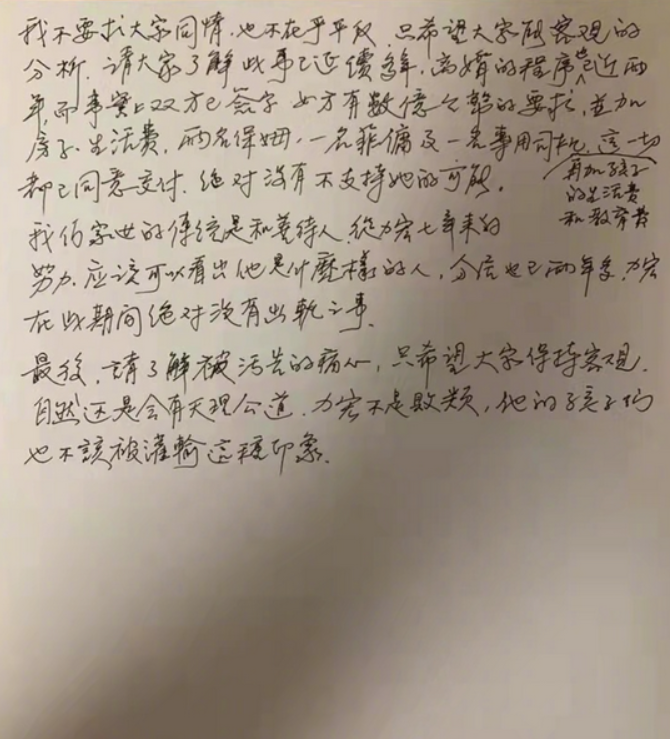 我不要求大家同情,也不在乎平反,只希望大家能客观的
分析.請大家了解此事已延續多年,离婚的程序已近两
年,而事實上双方已簽字,女方有數億台幣的要求,並加
房子.生活費.两名保姆.一名菲傭及一名專用司机.這一切
再加孩子
的生活费
和教育费
都已同意交付.绝对没有不支持她的可能.
我们家世的傳统是和善待人.從力宏七年来的
努力.应該可以看出他是什麼樣的人,分居也已两年多.力宏
在此期间绝对没有出軌之事.
最後,請了解被污蔑的痛心,只希望大家保持客观.
自然还是会有天理公道.力宏不是败类,他的孩子们
也不該被灌輸這種印象.